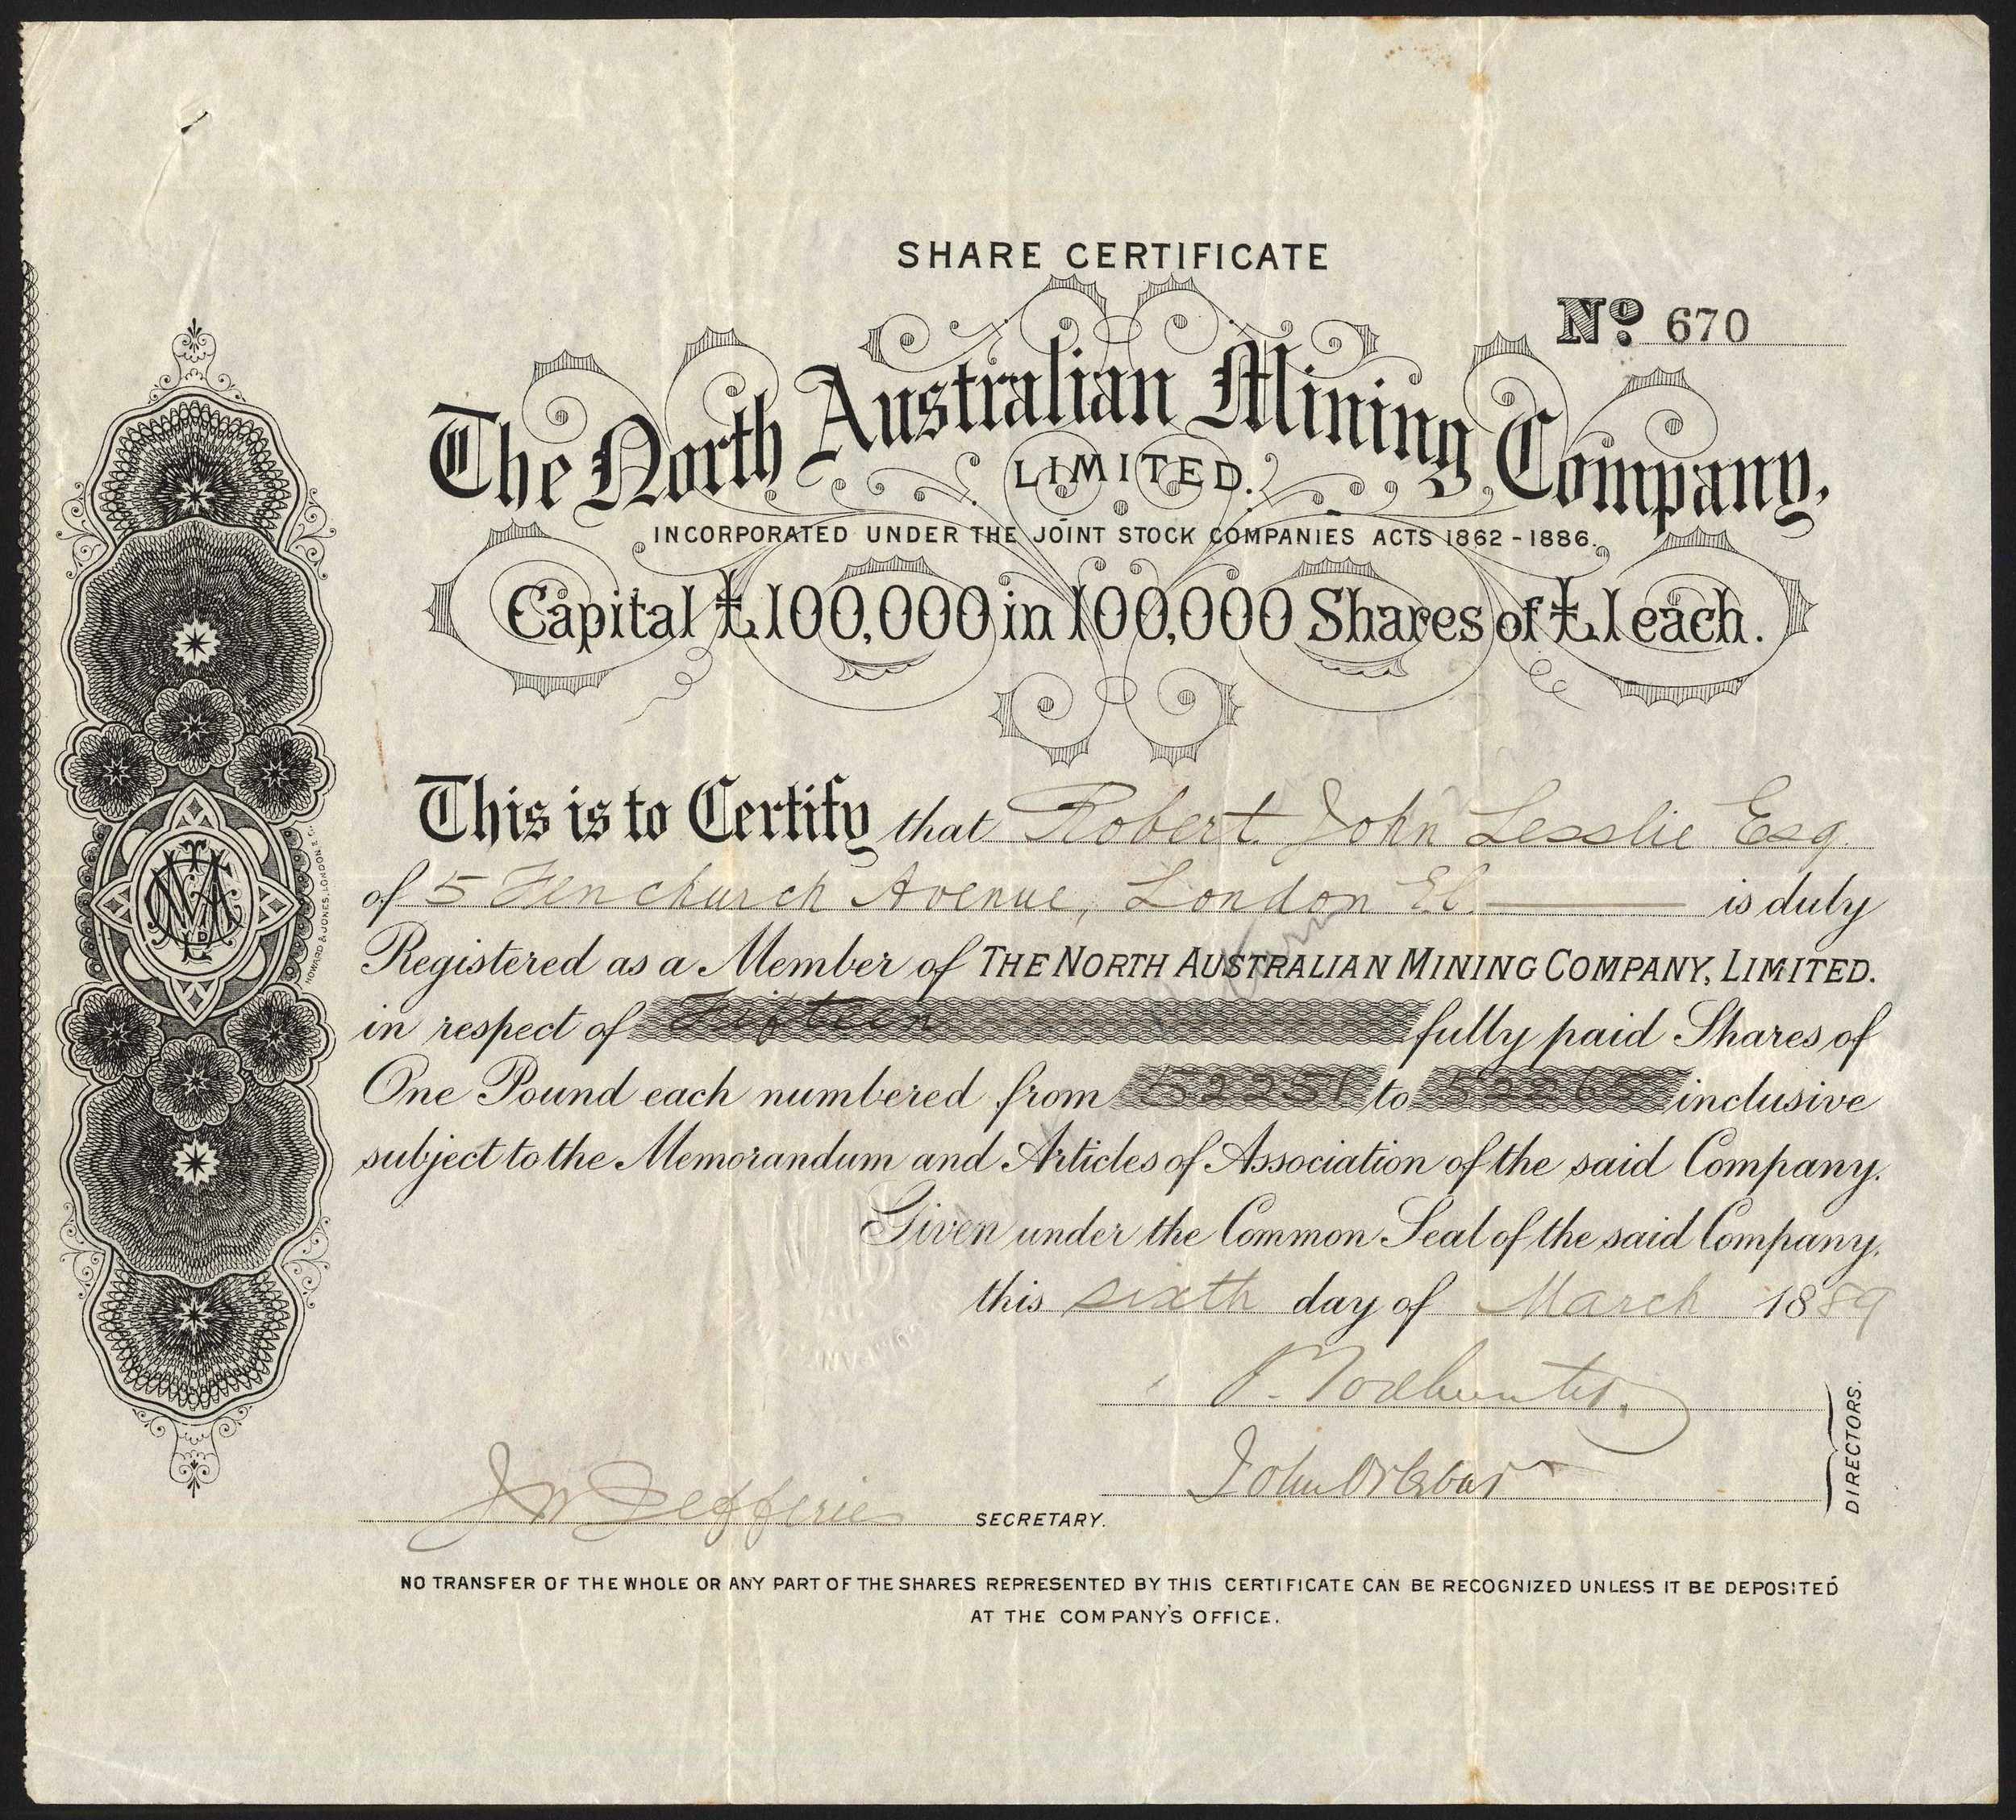 SHARE CERTIFICATE
No. 670
The North Australian Mining Company,
LIMITED.
INCORPORATED UNDER THE JOINT STOCK COMPANIES ACTS 1862 - 1886.
Capital £100,000 in 100,000 Shares of £1 each.
This is to Certify that Robert John Lesslie Esq.
of 5 Fenchurch Avenue, London E.C. is duly
Registered as a Member of THE NORTH AUSTRALIAN MINING COMPANY, LIMITED.
in respect of Fifteen fully paid Shares of
One Pound each numbered from 52251 to 52265 inclusive
subject to the Memorandum and Articles of Association of the said Company.
Given under the Common Seal of the said Company,
this sixth day of March 1889
P. Todhunter.
John Orlebar
DIRECTORS.
J W Jefferies SECRETARY.
NO TRANSFER OF THE WHOLE OR ANY PART OF THE SHARES REPRESENTED BY THIS CERTIFICATE CAN BE RECOGNIZED UNLESS IT BE DEPOSITED
AT THE COMPANY'S OFFICE.
HOWARD & JONES, LONDON E.C.